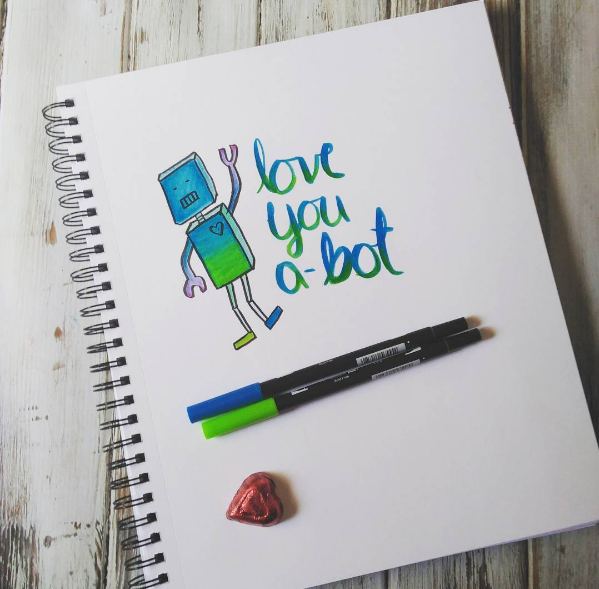 love
you
a-bot